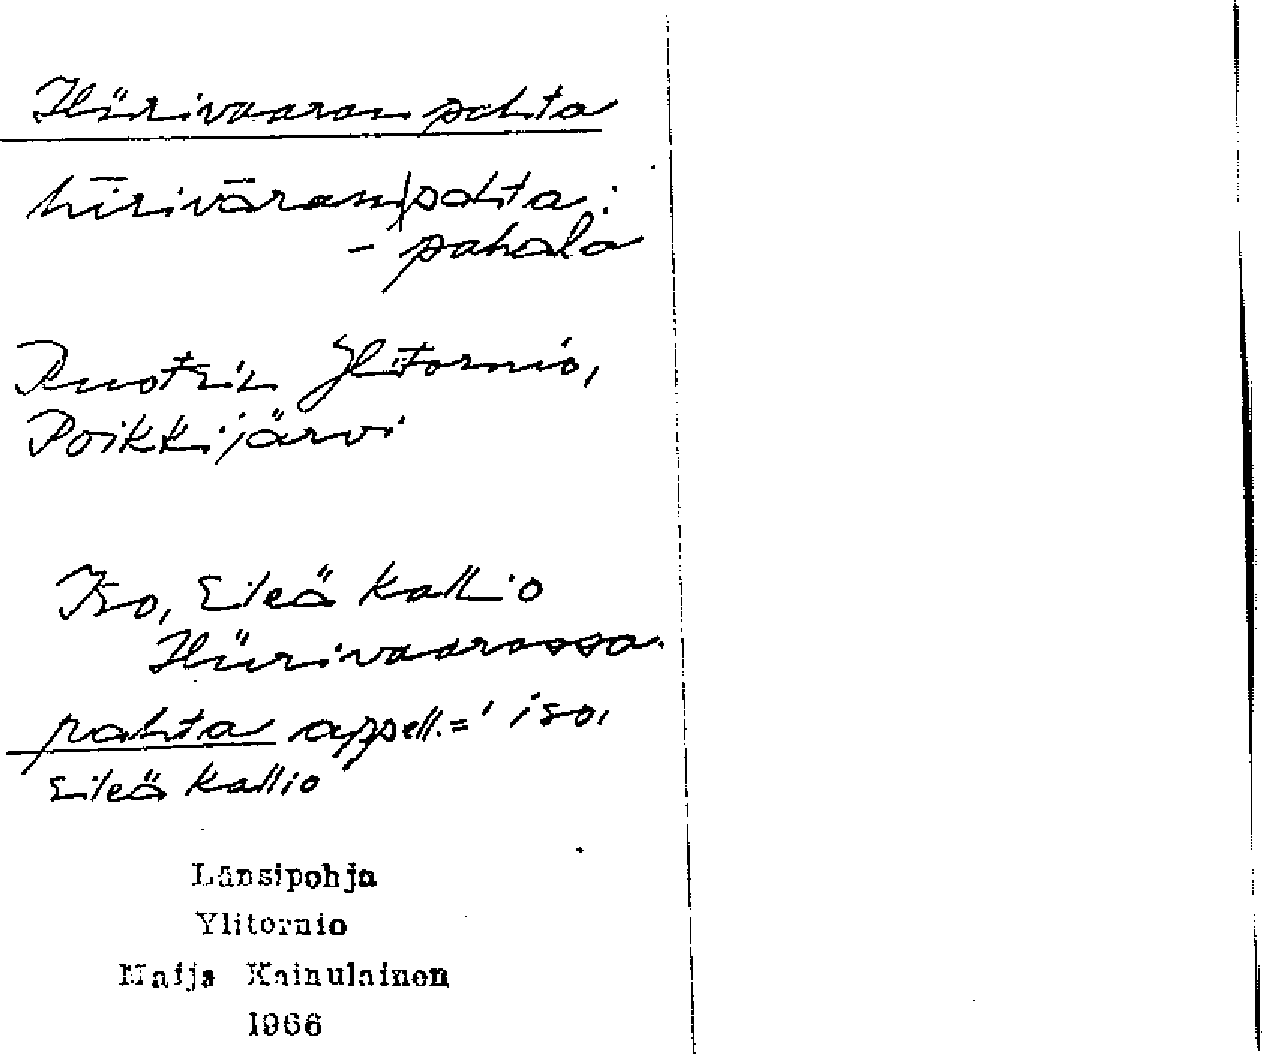 Hiirivaaran pahta
hīrivāran|pahta:
- pahala
Ruotsin Ylitornio,
Poikkijärvi
Iso, sileä kallio
Hiirivaarassa.
pahta appell.= 'iso,
sileä kallio
Länsipohja
Ylitornio
Maija Kainulainen
1966